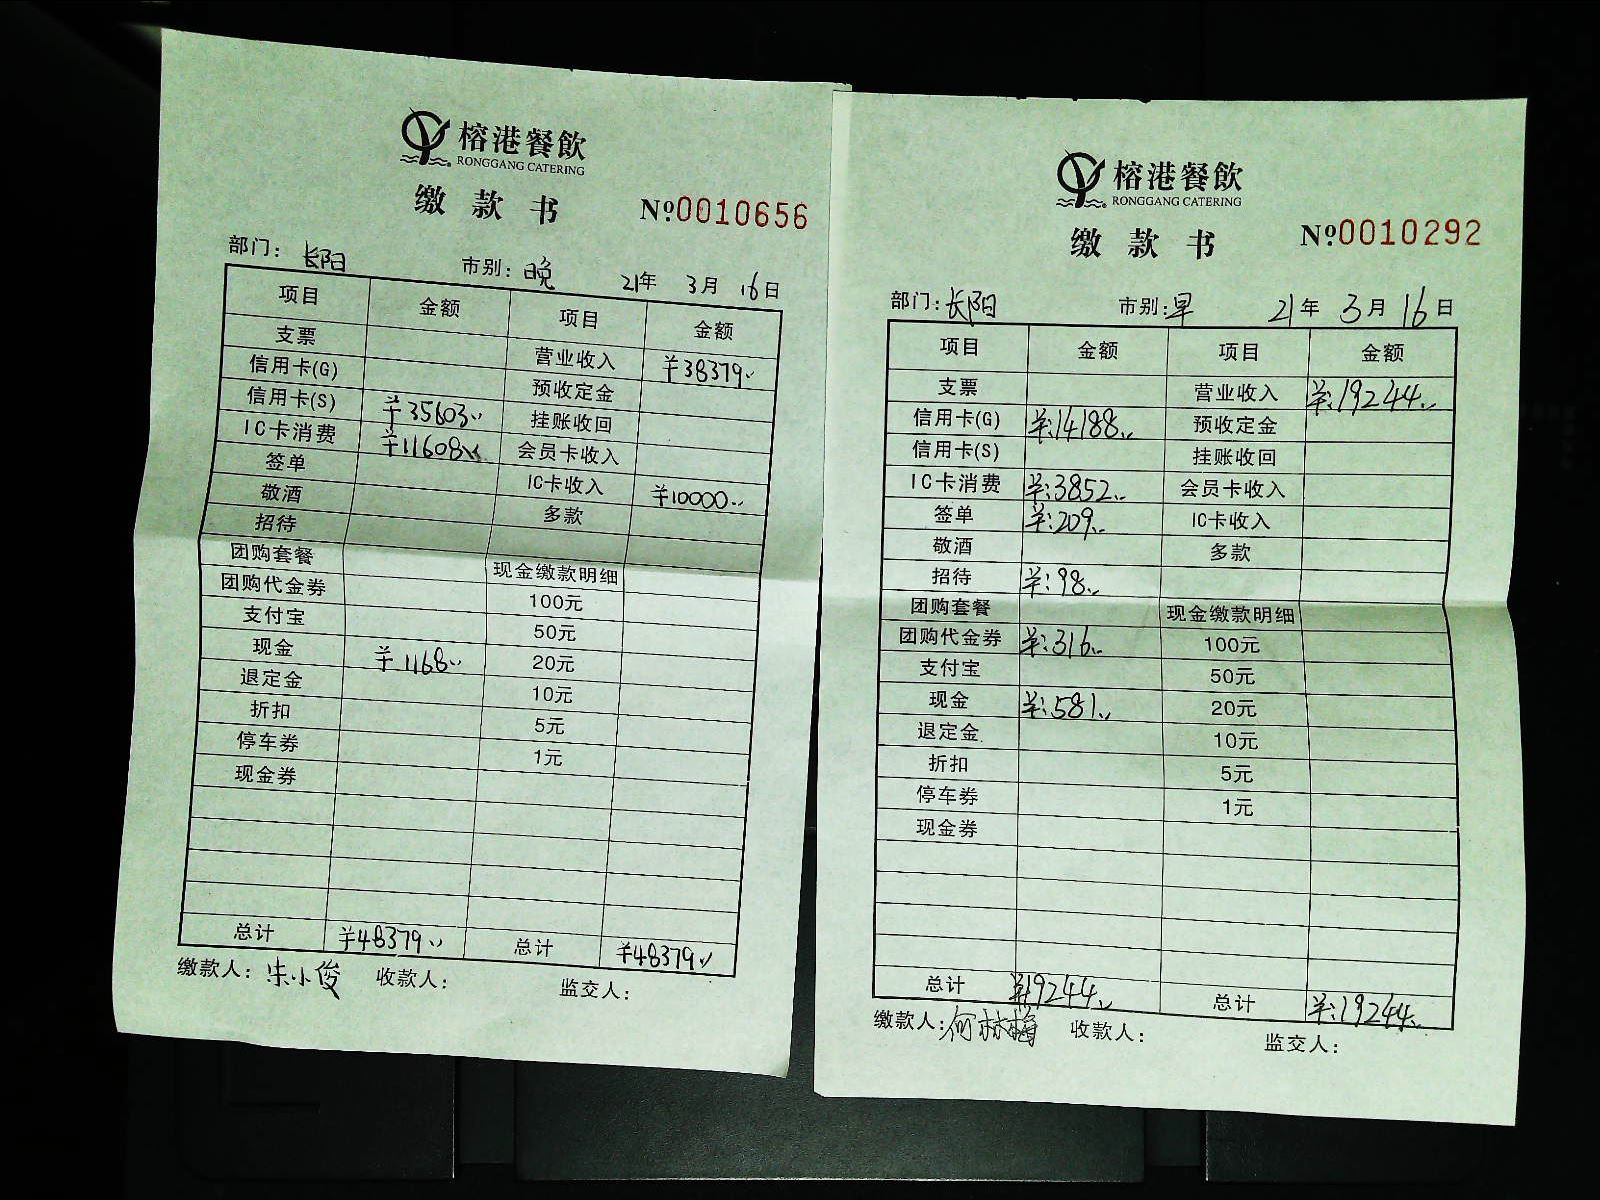 榕港餐飲
RONGGANG CATERING
缴款书 №0010656
部门：长阳 市别：晚 21年 3月 16日
项目 金额 项目 金额
支票 营业收入 ¥38379..
信用卡(G) 预收定金
信用卡(S) ¥35603.. 挂账收回
IC卡消费 ¥11608.. 会员卡收入
签单 IC卡收入 ¥10000..
敬酒 多款
招待
团购套餐 现金缴款明细
团购代金券 100元
支付宝 50元
现金 ¥1168.. 20元
退定金 10元
折扣 5元
停车券 1元
现金券
总计 ¥48379.. 总计 ¥48379..
缴款人：朱小俊 收款人： 监交人：
榕港餐飲
RONGGANG CATERING
缴款书 №0010292
部门：长阳 市别：早 21年 3月 16日
项目 金额 项目 金额
支票 营业收入 ¥:19244..
信用卡(G) ¥:14188.. 预收定金
信用卡(S) 挂账收回
IC卡消费 ¥:3852.. 会员卡收入
签单 ¥:209.. IC卡收入
敬酒 多款
招待 ¥:98..
团购套餐 现金缴款明细
团购代金券 ¥:316.. 100元
支付宝 50元
现金 ¥:581.. 20元
退定金 10元
折扣 5元
停车券 1元
现金券
总计 ¥19244.. 总计 ¥:19244..
缴款人：何林梅 收款人： 监交人：